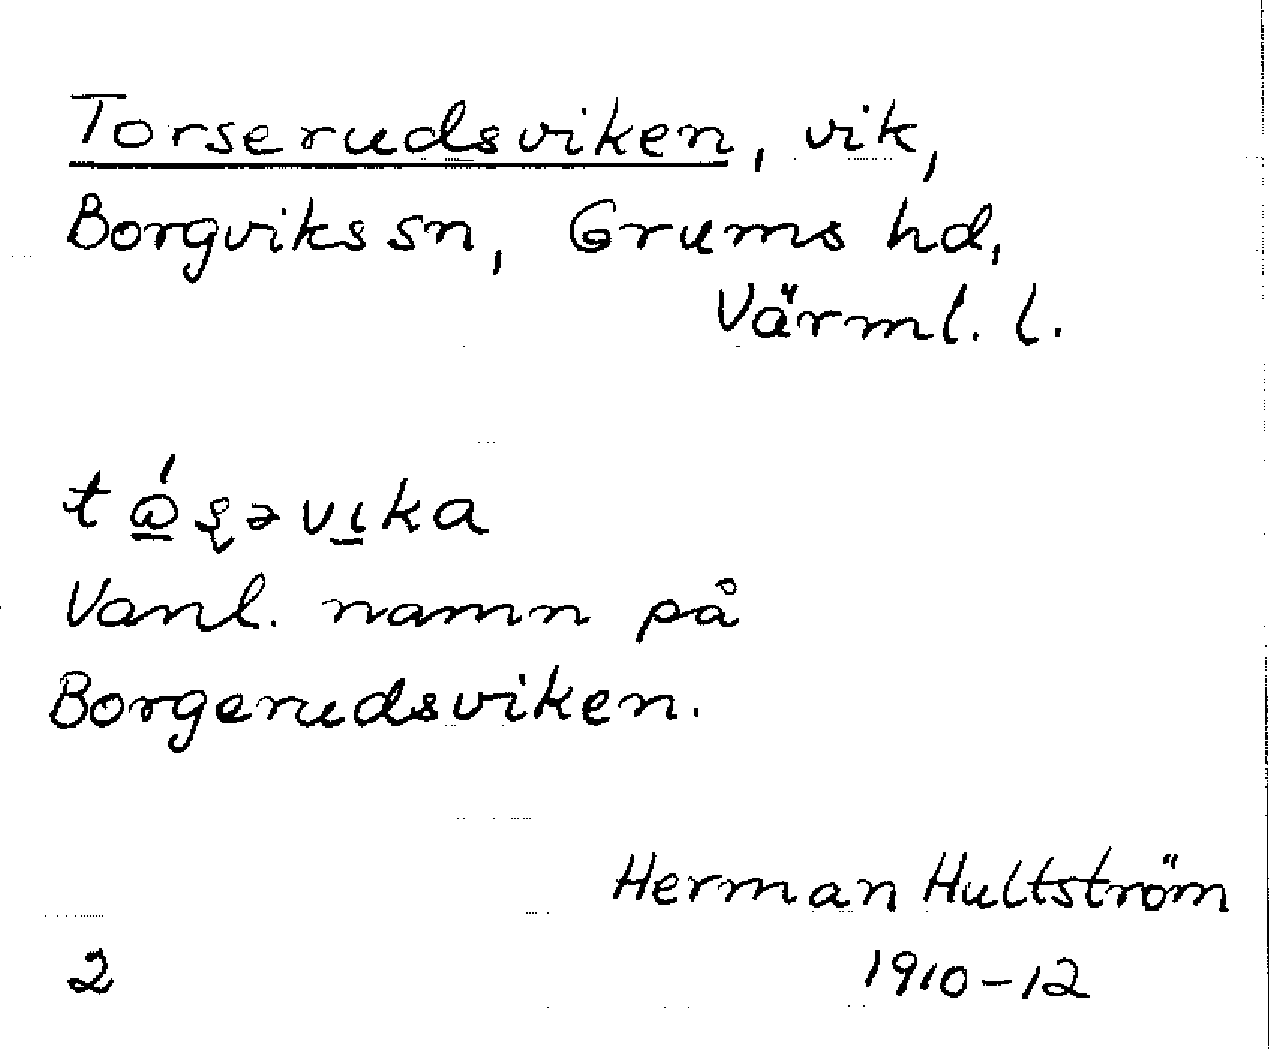 Torserudsviken, vik,
Borgviks sn, Grums hd,
Värml. l.
tώ̲ʂəvɩ̲ka
Vanl. namn på
Borgerudsviken.
Herman Hultström
2 1910-12